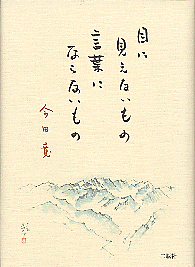 目に
見えないもの
言葉に
ならないもの
今田
二瓶社